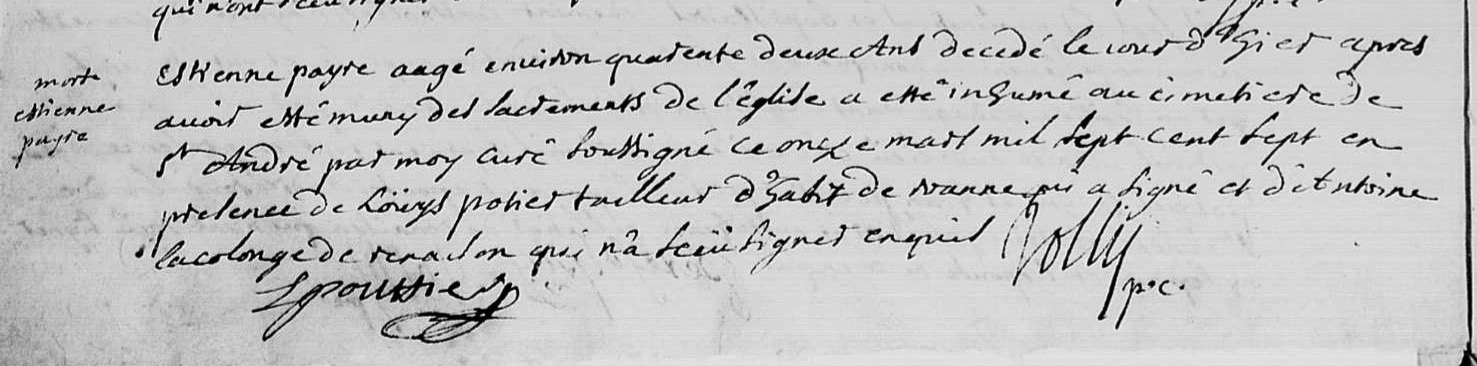 qui n'ont sceu signer
morte
estienne
payre
estienne payre aagé environ quarente deux Ans decedé le jour d'hier apres
avoir esté muny des sacrements de l'église a esté inhumé au cimetiere de
st André par moy curé soussigné ce onze mars mil sept cent sept en
presence de Loüys potier tailleur d'habit de roanne qui a signé et d'Antoine
lacolonge de renaison qui n'a sceü signer enquis
Lpouttier
p.c.